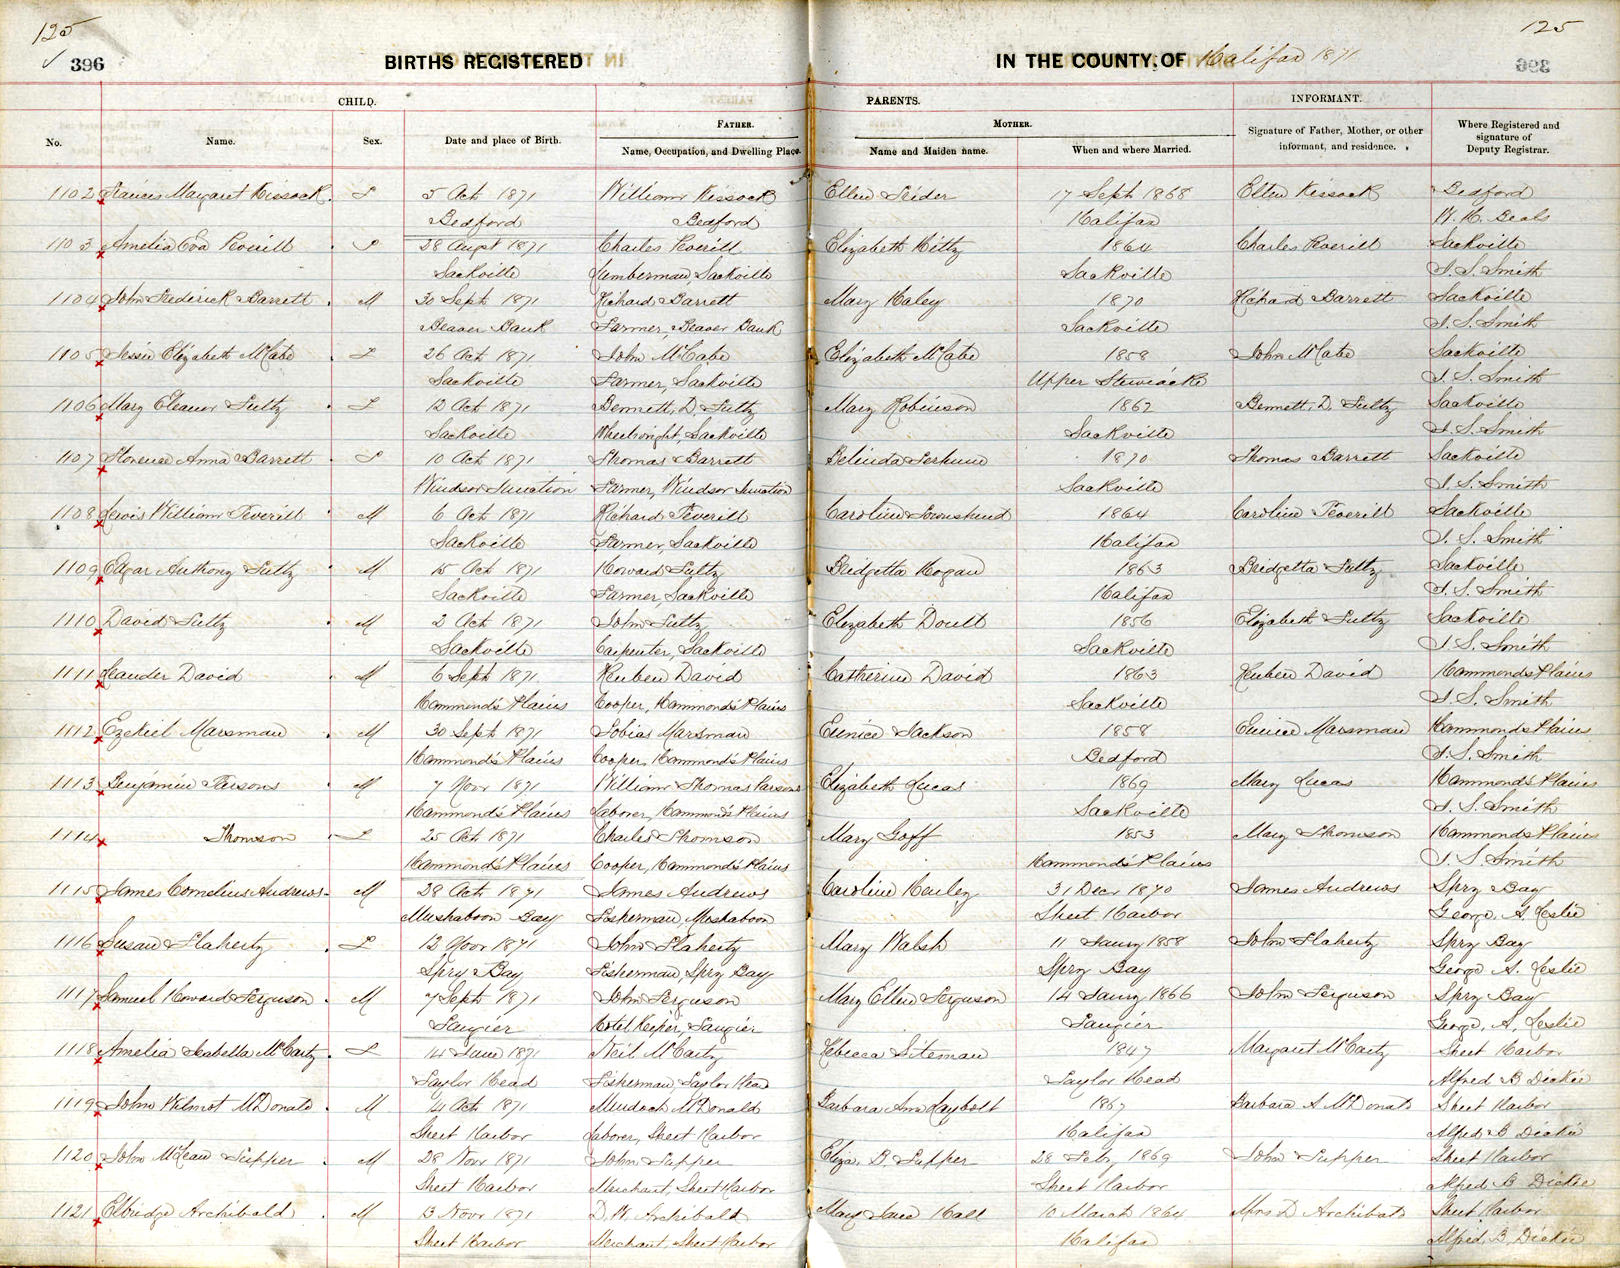 125
125
396
BIRTHS REGISTERED
IN THE COUNTY OF Halifax 1871
CHILD.
PARENTS.
INFORMANT.
FATHER.
MOTHER.
No.
Name.
Sex.
Date and place of Birth.
Name, Occupation, and Dwelling Place.
Name and Maiden name.
When and where Married.
Signature of Father, Mother, or other informant, and residence.
Where Registered and signature of Deputy Registrar.
1102 Frances Margaret Kissock F 5 Oct 1871 William Kissock Ellen Feider 17 Sept 1868 Ellen Kissock Bedford
Bedford Bedford Halifax W. H. Beals
1103 Amelia Eva Peverill F 28 Augt 1871 Charles Peverill Elizabeth Hiltz 1864 Charles Peverill Sackville
Sackville Lumberman, Sackville Sackville J. S. Smith
1104 John Frederick Barrett M 30 Sept 1871 Richard Barrett Mary Haley 1870 Richard Barrett Sackville
Beaver Bank Farmer, Beaver Bank Sackville J. S. Smith
1105 Jessie Elizabeth McCabe F 26 Oct 1871 John McCabe Elizabeth McCabe 1858 John McCabe Sackville
Sackville Farmer, Sackville Upper Stewiacke J. S. Smith
1106 Mary Eleanor Fultz F 12 Oct 1871 Bennett, D. Fultz Mary Robinson 1862 Bennett, D. Fultz Sackville
Sackville Wheelwright, Sackville Sackville J. S. Smith
1107 Florence Anna Barrett F 10 Oct 1871 Thomas Barrett Belinda 1870 Thomas Barrett Sackville
Windsor Junction Farmer, Windsor Junction Sackville J. S. Smith
1108 Lewis William Peverill M 6 Oct 1871 Richard Peverill Caroline Townshend 1864 Caroline Peverill Sackville
Sackville Farmer, Sackville Halifax J. S. Smith
1109 Edgar Anthony Fultz M 15 Oct 1871 Howard Fultz Bridgetta Hogan 1863 Bridgetta Fultz Sackville
Sackville Farmer, Sackville Halifax J. S. Smith
1110 David Fultz M 2 Oct 1871 John Fultz Elizabeth Doull 1856 Elizabeth Fultz Sackville
Sackville Carpenter, Sackville Sackville J. S. Smith
1111 Leander David M 6 Sept 1871 Reuben David Catherine David 1863 Reuben David Hammond's Plains
Hammond's Plains Cooper, Hammond's Plains Sackville J. S. Smith
1112 Ezekiel Marsman M 30 Sept 1871 Tobias Marsman Eunice Jackson 1858 Eunice Marsman Hammond's Plains
Hammond's Plains Cooper, Hammond's Plains Bedford J. S. Smith
1113 Benjamin Parsons M 7 Novr 1871 William Thomas Parsons Elizabeth Lucas 1869 Mary Lucas Hammond's Plains
Hammond's Plains Laborer, Hammond's Plains Sackville J. S. Smith
1114 Thomson F 25 Oct 1871 Charles Thomson Mary Goff 1853 Mary Thomson Hammond's Plains
Hammond's Plains Cooper, Hammond's Plains Hammond's Plains J. S. Smith
1115 James Cornelius Andrews M 28 Oct 1871 James Andrews Caroline Hawley 31 Decr 1870 James Andrews Spry Bay
Mushaboon Bay Fisherman, Mushaboon Sheet Harbor George, A. Leslie
1116 Susan Flaherty F 12 Novr 1871 John Flaherty Mary Walsh 11 Jany 1858 John Flaherty Spry Bay
Spry Bay Fisherman, Spry Bay Spry Bay George A. Leslie
1117 Samuel Howard Ferguson M 7 Sept 1871 John Ferguson Mary Ellen Ferguson 14 Jany 1866 John Ferguson Spry Bay
Tangier Hotel Keeper, Tangier Tangier George, A, Leslie
1118 Amelia Isabella McCarty F 14 June 1871 Neil McCarty Rebecca Siteman 1847 Margaret McCarty Sheet Harbor
Taylor Head Fisherman, Taylor Head Taylor Head Alfred B Dickie
1119 John Wilmot McDonald M 14 Oct 1871 Murdoch McDonald Barbara Ann Laybolt 1867 Barbara A McDonald Sheet Harbor
Sheet Harbor Laborer, Sheet Harbor Halifax Alfred B Dickie
1120 John McLean Tupper M 28 Novr 1871 John Tupper Eliza, B. Tupper 28 Feby 1869 John Tupper Sheet Harbor
Sheet Harbor Merchant, Sheet Harbor Sheet Harbor Alfred B Dickie
1121 Elbridge Archibald M 13 Novr 1871 D. W. Archibald Mary Jane Hall 10 March 1864 Mrs D Archibald Sheet Harbor
Sheet Harbor Merchant, Sheet Harbor Halifax Alfred, B, Dickie